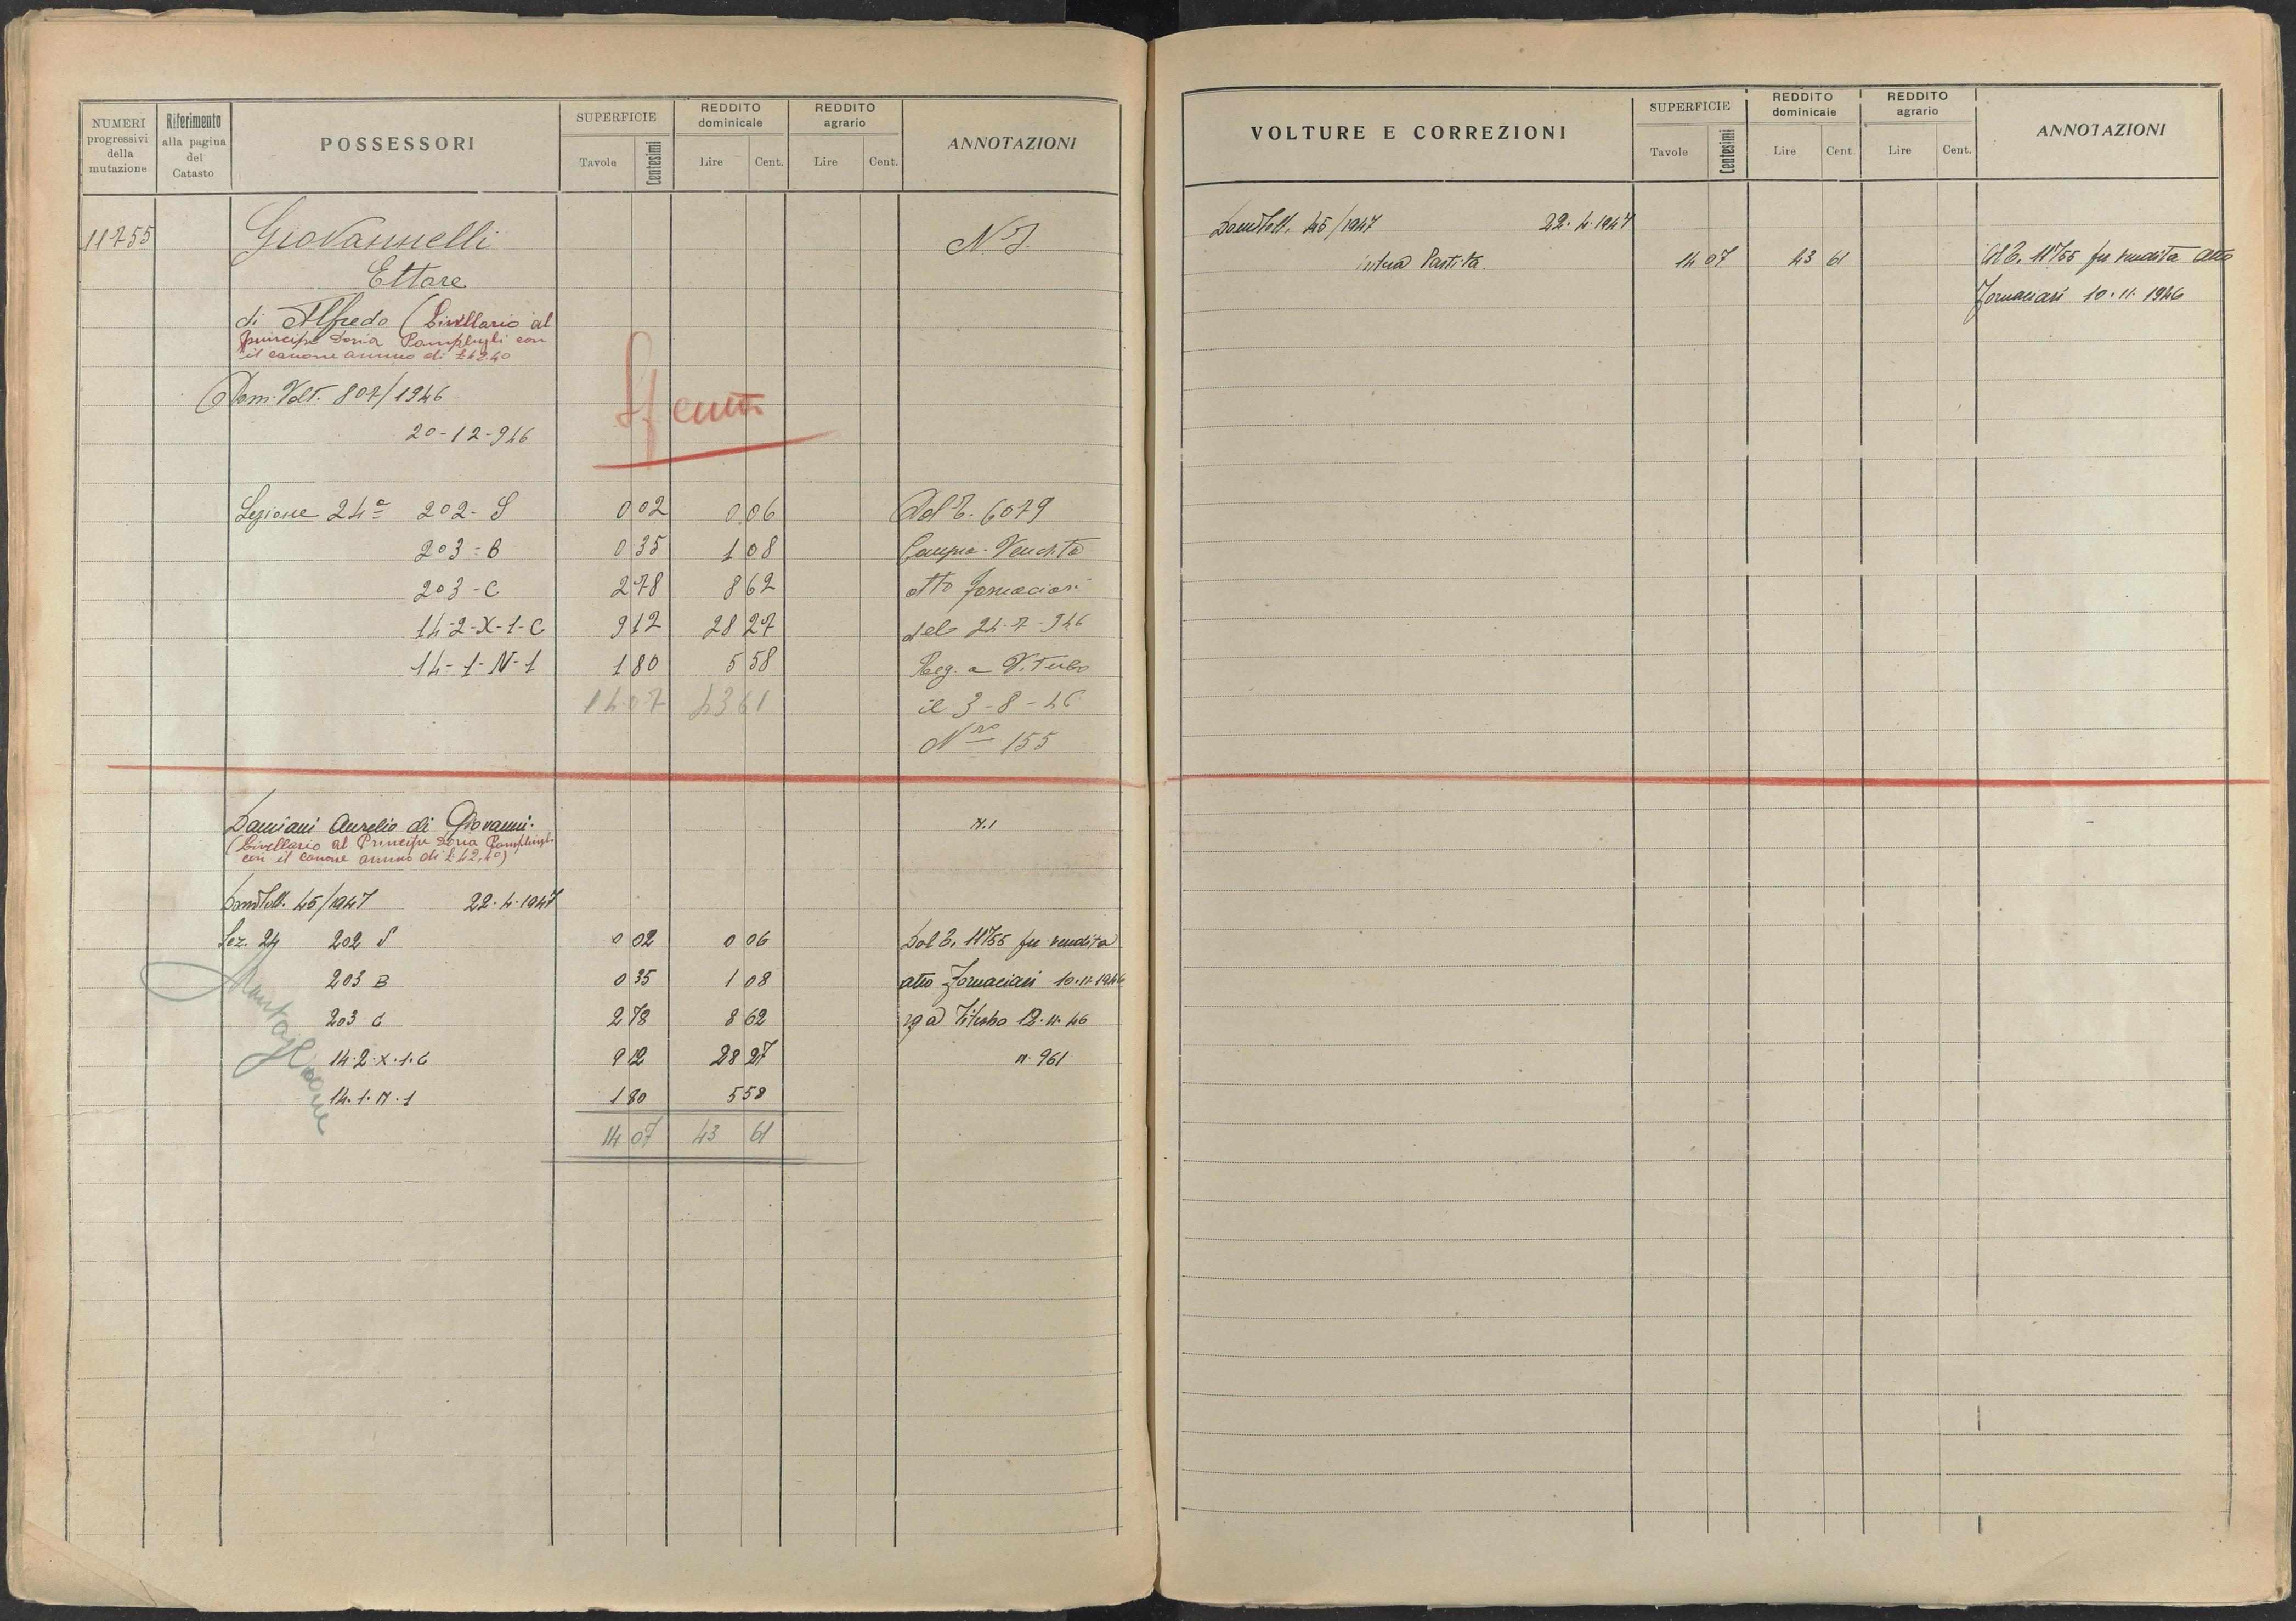 NUMERI progressivi della mutazione | Riferimento alla pagina del Catasto | POSSESSORI | SUPERFICIE Tavole Centesimi | REDDITO dominicale Lire Cent. | REDDITO agrario Lire Cent. | ANNOTAZIONI
11755 Giovannelli N. I.
Ettore
di Alfredo (Livellario al
principe Doria Pamphyli con
il canone annuo di £ 42.40
Dom. Volt. 807/1946
20-12-946
Spenta
Sezione 24ª 202- S 0 02 0 06 Dal T. 6079
203 - B 0 35 1 08 Compra-Vendita
203 - C 2 78 8 62 atto Fornaciari
14-2-X-1-C 9 12 28 27 del 24-7-946
14-1-N-1 1 80 5 58 Reg. a Viterbo
14 07 43 61 il 3-8-46
Nro 155
Damiani Aurelio di Giovanni. N. 1
(Livellario al Principe Doria Pamphyli
con il canone annuo di £ 42,40)
Dom Volt. 45/1947 22.4.1947
Sez. 24 202 S 0 02 0 06 Dal T. 11755 per vendita
203 B 0 35 1 08 atto Fornaciari 10.11.1946
203 C 2 78 8 62 rg a Viterbo 12.11.46
14.2.X.1.C 9 12 28 27 n. 961
14.1.N.1 1 80 5 58
14 07 43 61
VOLTURE E CORREZIONI | SUPERFICIE Tavole Centesimi | REDDITO dominicale Lire Cent. | REDDITO agrario Lire Cent. | ANNOTAZIONI
Dom Volt. 45/1947 22.4.1947
intera Partita 14 07 43 61 Al T. 11755 per vendita atto
Fornaciari 10.11.1946